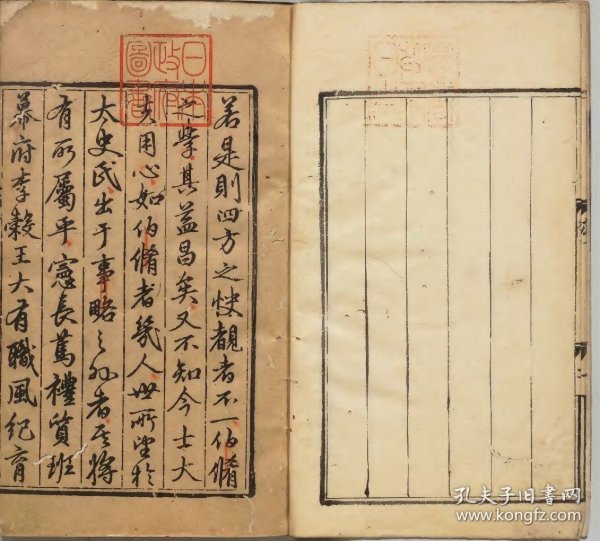 若是則四方之快覩者不一伯脩
之學其益昌矣又不知今士大
夫用心如伯脩者幾人世所望於
太史氏出于事略之外者其將
有所屬乎憲長篤禮質班
幕府李穀王大有職風紀育
日本
政府
圖書
孔夫子旧书网
www.kongfz.com